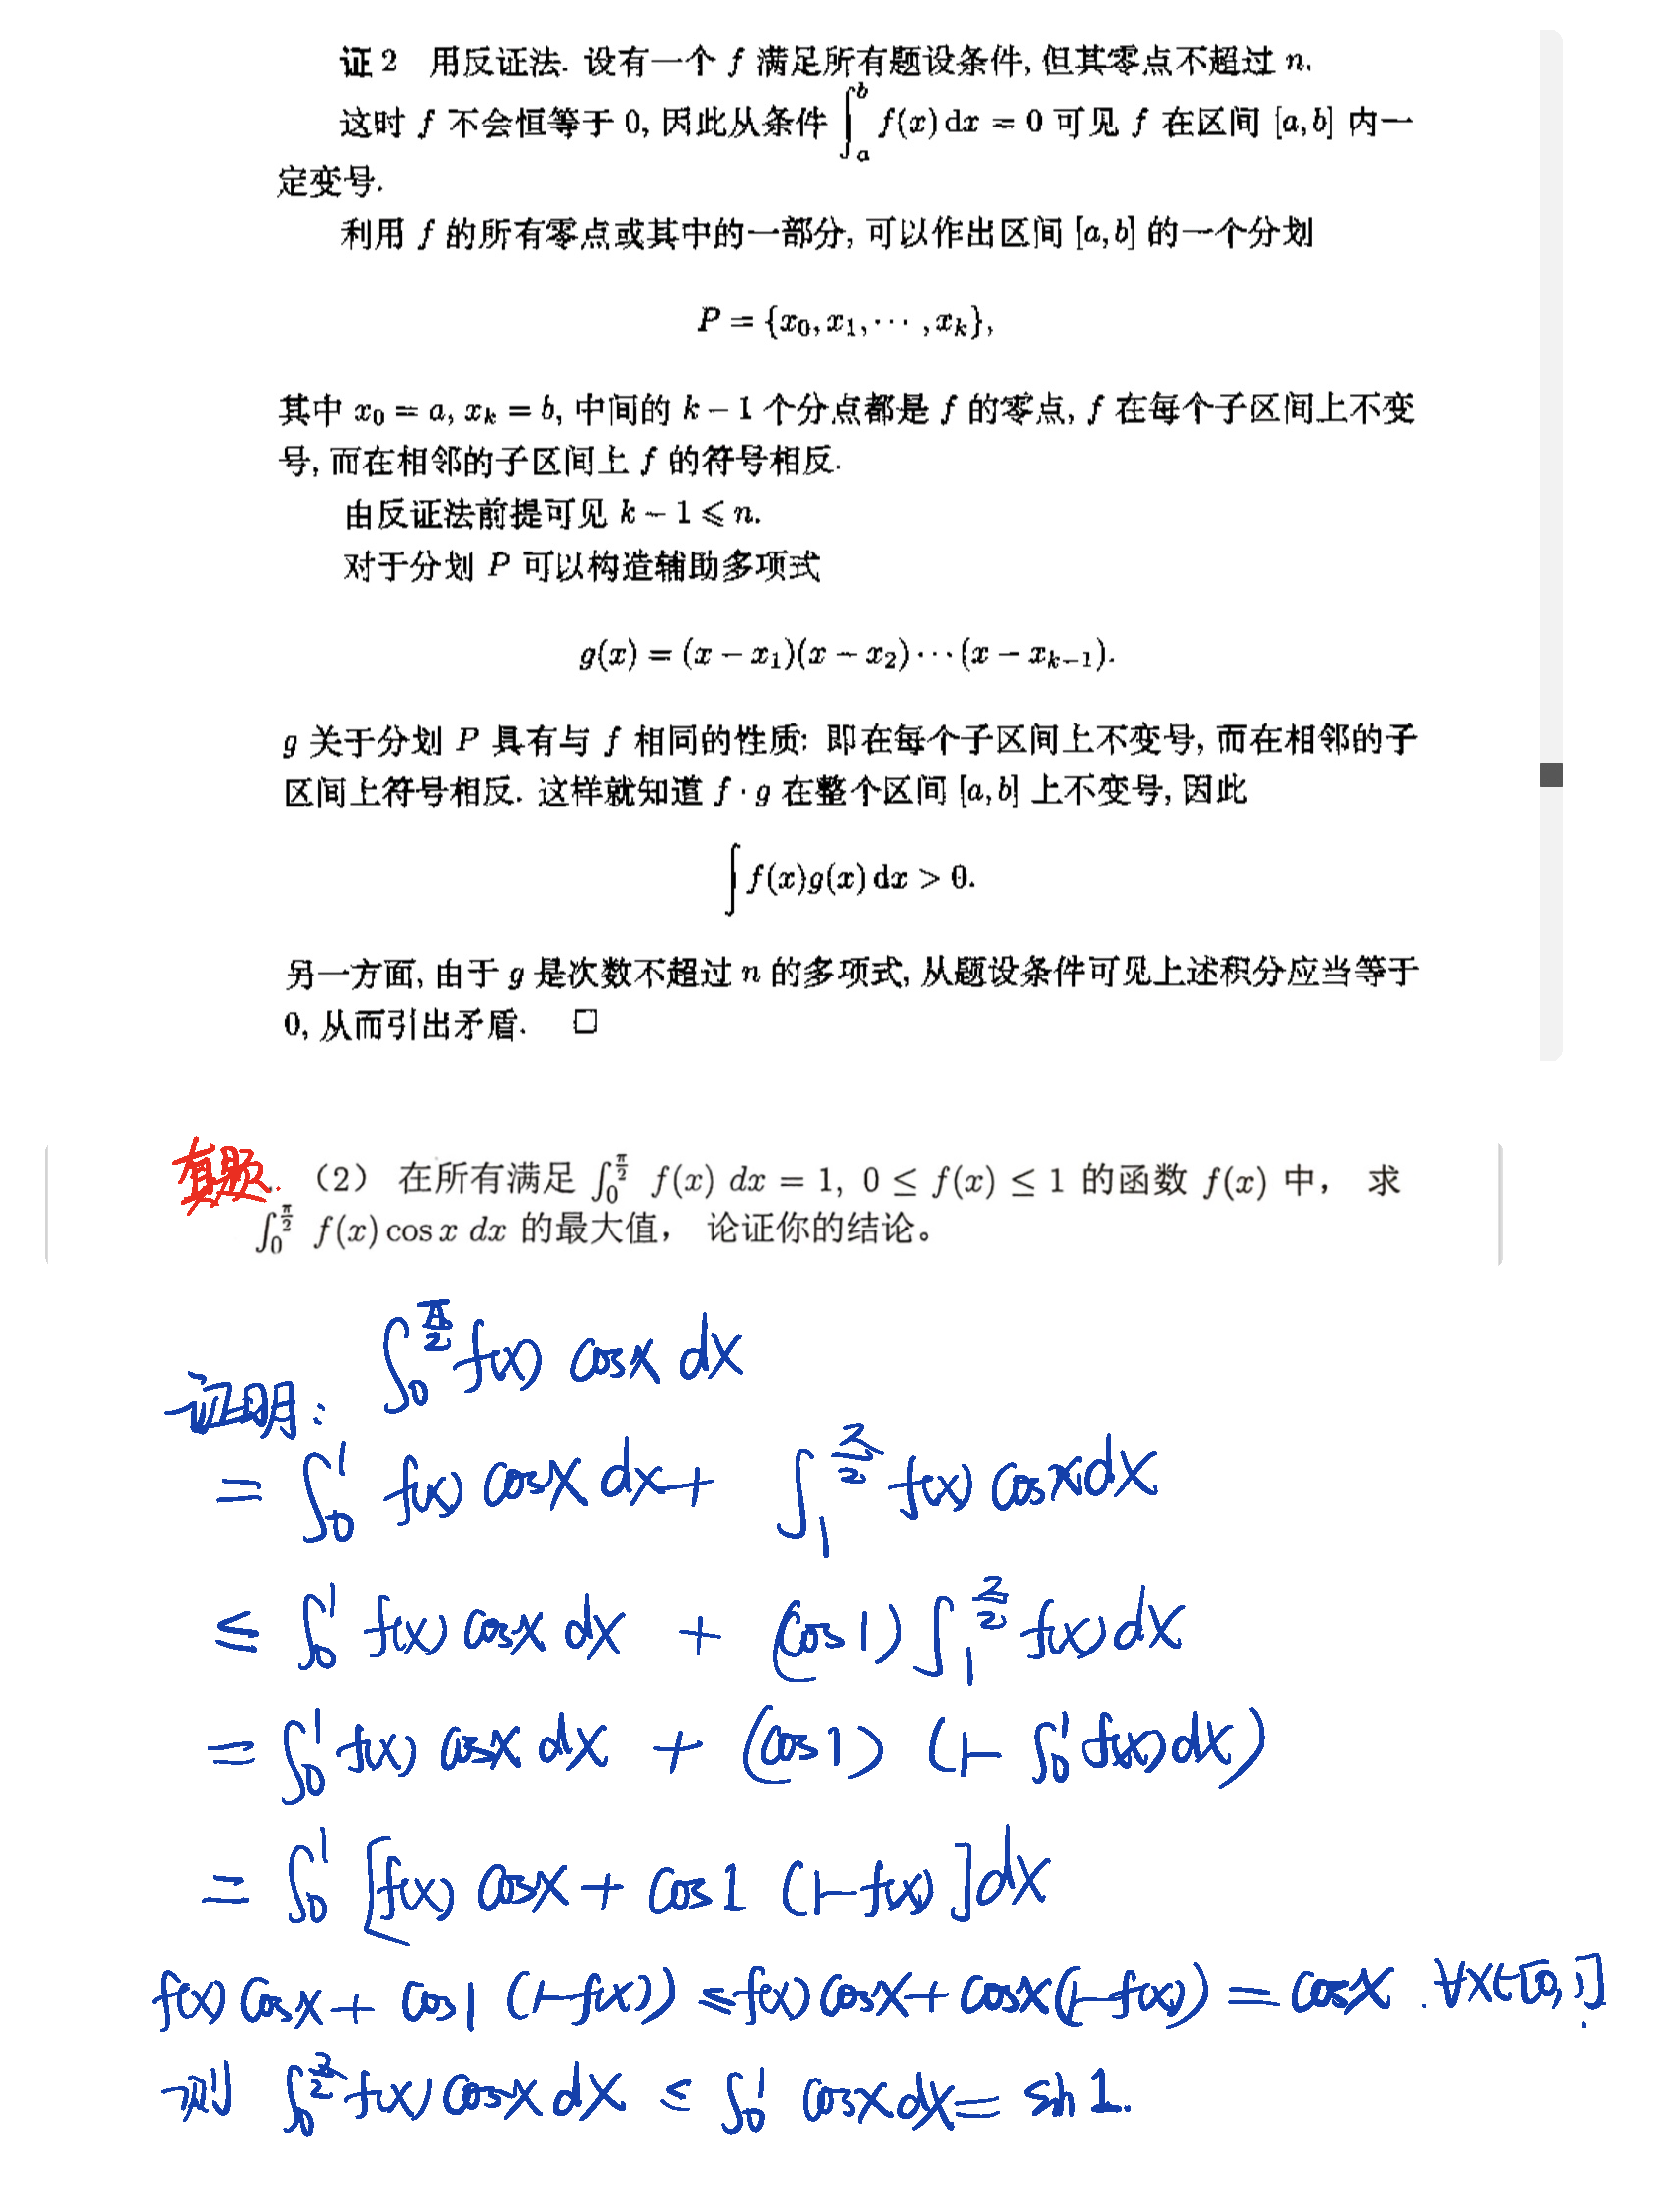 证 2 用反证法. 设有一个 f 满足所有题设条件, 但其零点不超过 n.
这时 f 不会恒等于 0, 因此从条件 ∫_a^b f(x) dx = 0 可见 f 在区间 [a, b] 内一
定变号.
利用 f 的所有零点或其中的一部分, 可以作出区间 [a, b] 的一个分划
P = {x₀, x₁, ⋯ , x_k},
其中 x₀ = a, x_k = b, 中间的 k − 1 个分点都是 f 的零点, f 在每个子区间上不变
号, 而在相邻的子区间上 f 的符号相反.
由反证法前提可见 k − 1 ⩽ n.
对于分划 P 可以构造辅助多项式
g(x) = (x − x₁)(x − x₂) ⋯ (x − x_{k−1}).
g 关于分划 P 具有与 f 相同的性质: 即在每个子区间上不变号, 而在相邻的子
区间上符号相反. 这样就知道 f · g 在整个区间 [a, b] 上不变号, 因此
∫ f(x)g(x) dx > 0.
另一方面, 由于 g 是次数不超过 n 的多项式, 从题设条件可见上述积分应当等于
0, 从而引出矛盾. □
真题. （2） 在所有满足 ∫_0^{π/2} f(x) dx = 1, 0 ≤ f(x) ≤ 1 的函数 f(x) 中， 求
∫_0^{π/2} f(x) cos x dx 的最大值， 论证你的结论。
证明: ∫_0^{π/2} f(x) cosx dx
= ∫_0^1 f(x) cosx dx + ∫_1^{π/2} f(x) cosx dx
≤ ∫_0^1 f(x) cosx dx + (cos1) ∫_1^{π/2} f(x) dx
= ∫_0^1 f(x) cosx dx + (cos1) (1 − ∫_0^1 f(x) dx)
= ∫_0^1 [f(x) cosx + cos1 (1−f(x)] dx
f(x) cosx + cos1 (1−f(x)) ≤ f(x) cosx + cosx(1−f(x)) = cosx . ∀x∈[0,1].
则 ∫_0^{π/2} f(x) cosx dx ≤ ∫_0^1 cosx dx = sin1.